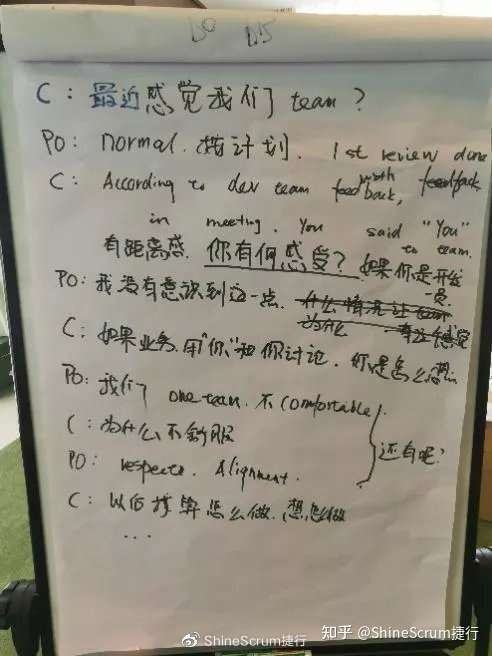 C: 最近感觉我们 team?
PO: normal. 按计划. 1st review done
C: According to dev team feedback, with
in meeting. You said "You" to team.
有距离感. 你有何感受? 如果你是开发一员.
PO: 我没有意识到这一点. 什么情况让team 为什么 有这个感觉
C: 如果业务用"你"和你讨论. 你是怎么想
PO: 我们 one team. 不 comfortable.
C: 为什么不舒服
还有呢?
PO: respects. Alignment.
C: 以后打算怎么做. 想怎做
...
知乎 @ShineScrum捷行
@ShineScrum捷行